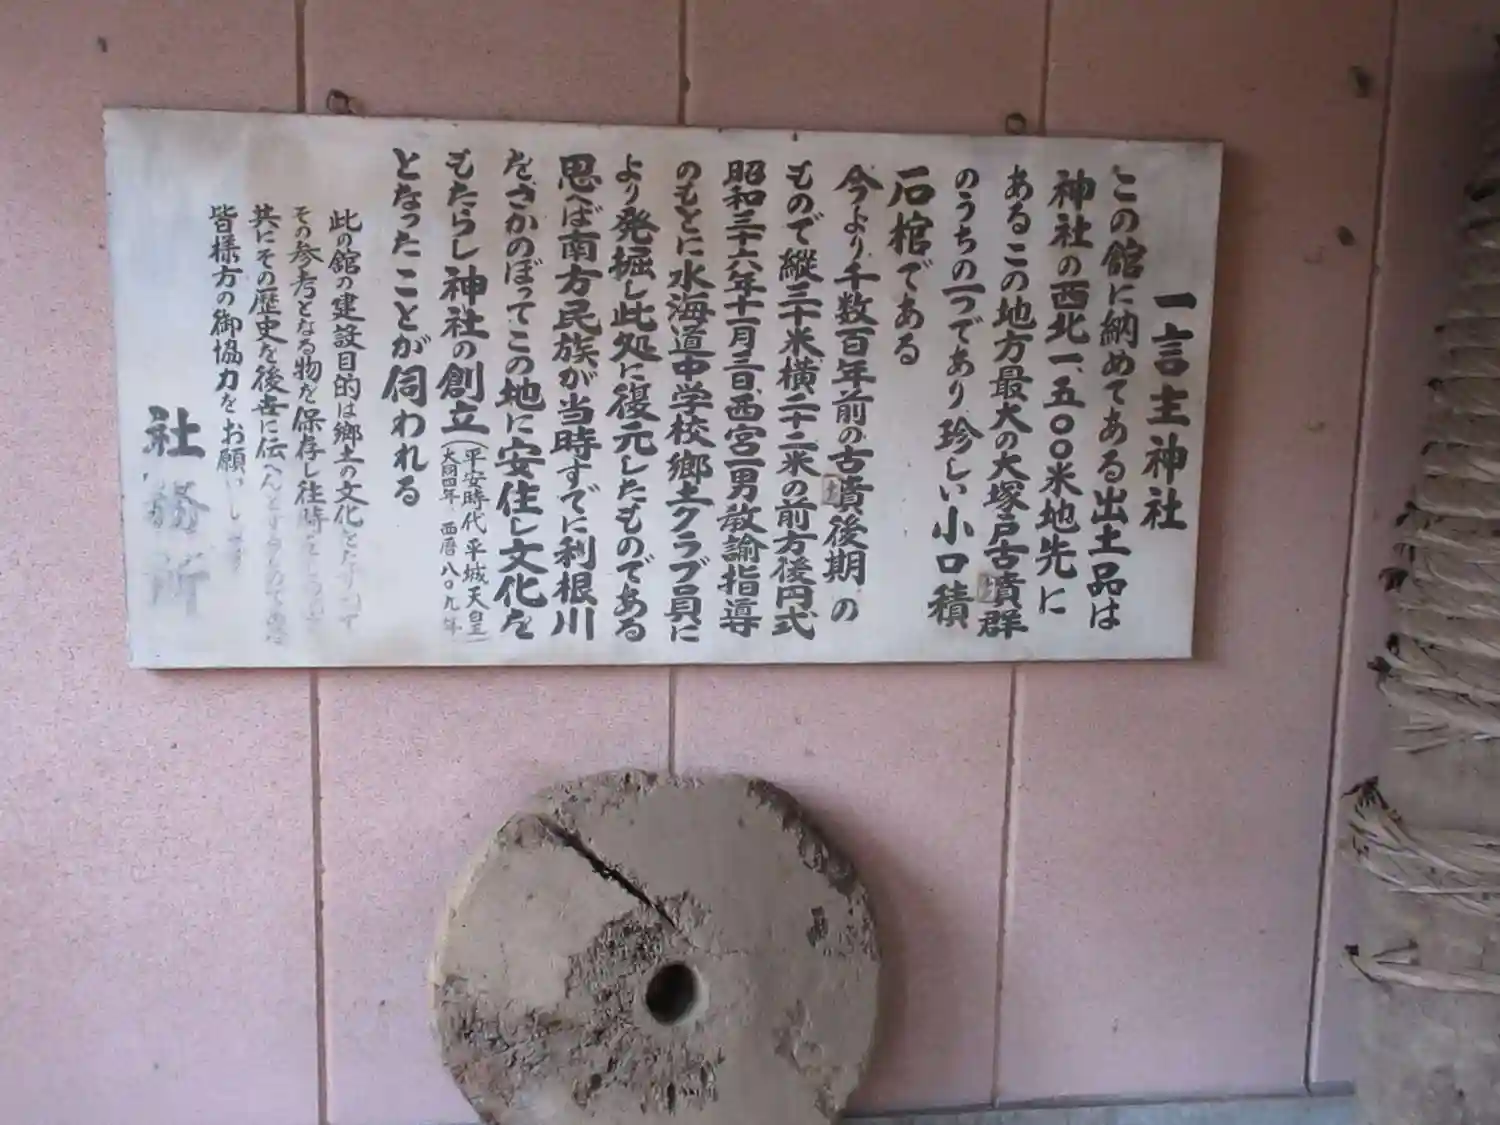 一言主神社
この館に納めてある出土品は
神社の西北一、五〇〇米地先に
あるこの地方最大の大塚戸古墳群
のうちの一つであり珍しい小口積
石棺である
今より千数百年前の古墳後期の
もので縦三十米横二十二米の前方後円式
昭和三十六年十一月三日、西宮一男教諭指導
のもとに水海道中学校郷土クラブ員に
より発掘し此処に復元したものである
思へば南方民族が当時すでに利根川
をさかのぼってこの地に安住し文化を
もたらし神社の創立(平安時代 平城天皇 大同四年 西暦八〇九年)
となったことが伺われる
此の館の建設目的は郷土の文化と
その参考となる物を保存し往時を
共にその歴史を後世に伝へん
皆様方の御協力をお願いします
社務所